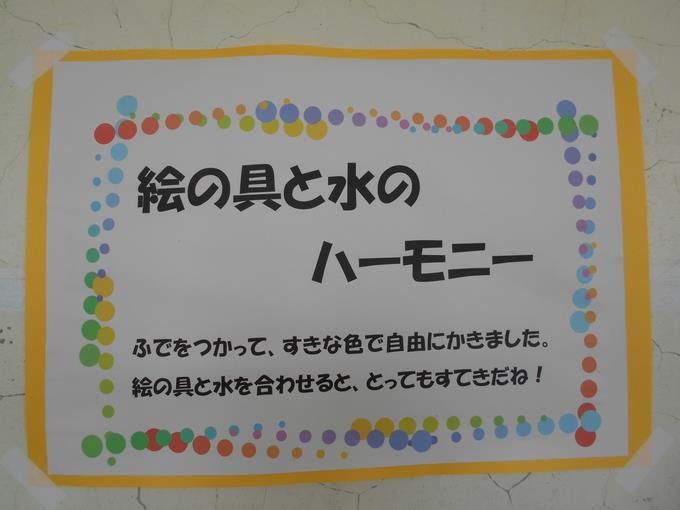 絵の具と水の
ハーモニー
ふでをつかって、すきな色で自由にかきました。
絵の具と水を合わせると、とってもすてきだね！